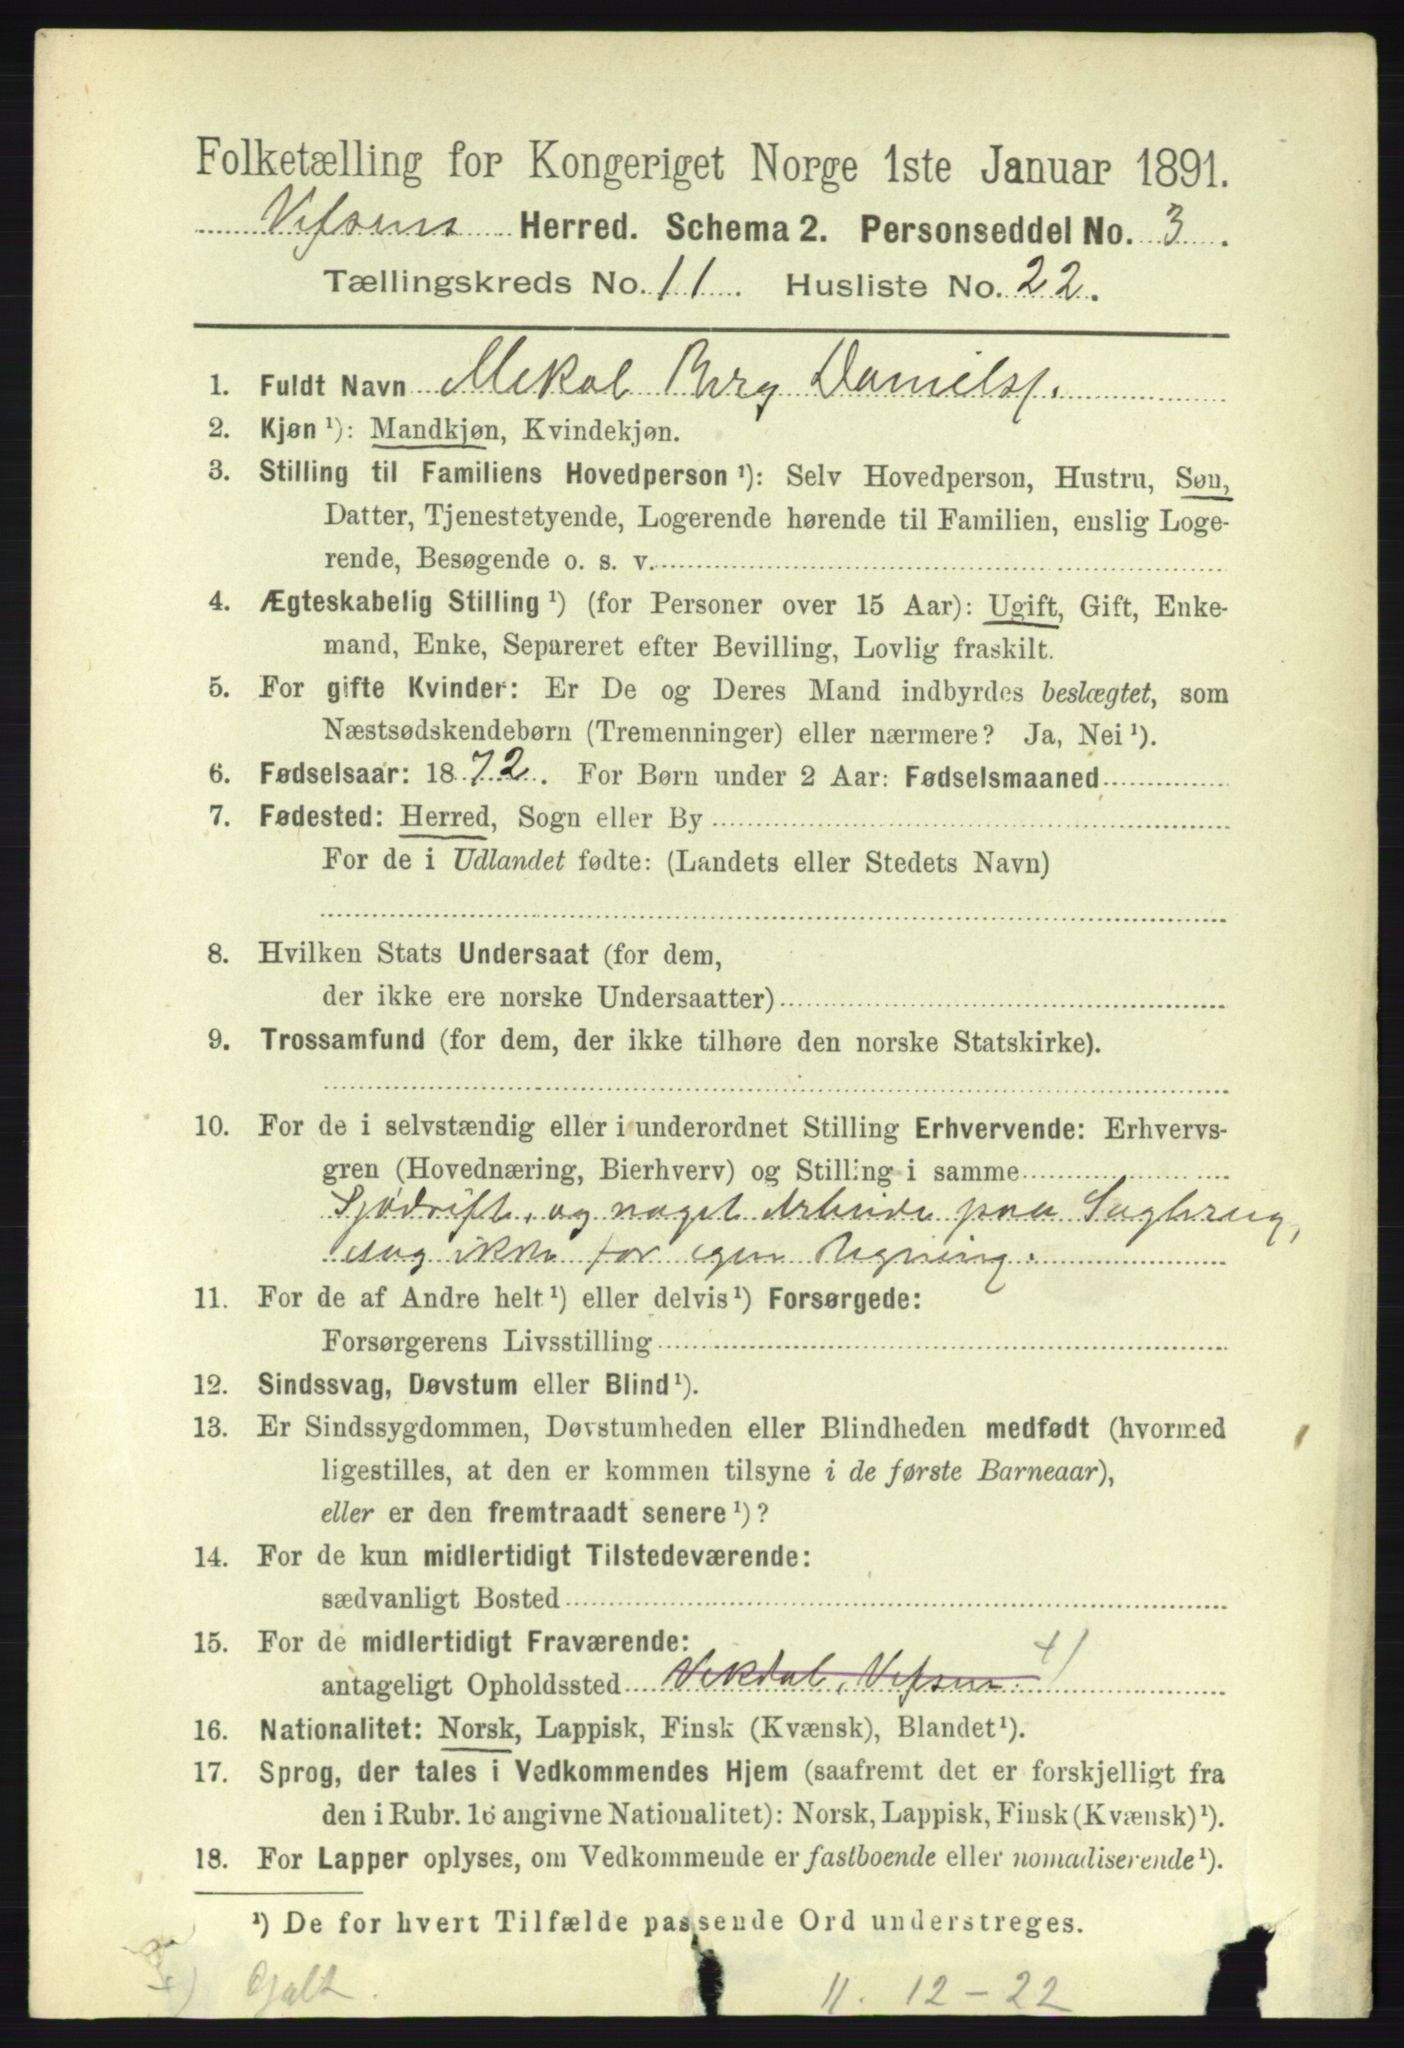 Folketælling for Kongeriget Norge 1ste Januar 1891.
Vefsens Herred. Schema 2. Personseddel No. 3.
Tællingskreds No. 11. Husliste No. 22.
1. Fuldt Navn Mekal Berg Danielsf.
2. Kjøn ¹): Mandkjøn, Kvindekjøn.
3. Stilling til Familiens Hovedperson ¹): Selv Hovedperson, Hustru, Søn,
Datter, Tjenestetyende, Logerende hørende til Familien, enslig Loge-
rende, Besøgende o. s. v.
4. Ægteskabelig Stilling ¹) (for Personer over 15 Aar): Ugift, Gift, Enke-
mand, Enke, Separeret efter Bevilling, Lovlig fraskilt.
5. For gifte Kvinder: Er De og Deres Mand indbyrdes beslægtet, som
Næstsødskendebørn (Tremenninger) eller nærmere? Ja, Nei ¹).
6. Fødselsaar: 1872. For Børn under 2 Aar: Fødselsmaaned
7. Fødested: Herred, Sogn eller By
For de i Udlandet fødte: (Landets eller Stedets Navn)
8. Hvilken Stats Undersaat (for dem,
der ikke ere norske Undersaatter)
9. Trossamfund (for dem, der ikke tilhøre den norske Statskirke).
10. For de i selvstændig eller i underordnet Stilling Erhvervende: Erhvervs-
gren (Hovednæring, Bierhverv) og Stilling i samme
Sjödrift, og noget Arbeide paa Sagbrug,
dog ikke for egen Regning.
11. For de af Andre helt ¹) eller delvis ¹) Forsørgede:
Forsørgerens Livsstilling
12. Sindssvag, Døvstum eller Blind ¹).
13. Er Sindssygdommen, Døvstumheden eller Blindheden medfødt (hvormed
ligestilles, at den er kommen tilsyne i de første Barneaar),
eller er den fremtraadt senere ¹)?
14. For de kun midlertidigt Tilstedeværende:
sædvanligt Bosted
15. For de midlertidigt Fraværende:
antageligt Opholdssted Vikdal, Vefsen. +)
16. Nationalitet: Norsk, Lappisk, Finsk (Kvænsk), Blandet ¹).
17. Sprog, der tales i Vedkommendes Hjem (saafremt det er forskjelligt fra
den i Rubr. 16 angivne Nationalitet): Norsk, Lappisk, Finsk (Kvænsk) ¹).
18. For Lapper oplyses, om Vedkommende er fastboende eller nomadiserende ¹).
¹) De for hvert Tilfælde passende Ord understreges.
+)
11. 12 - 22